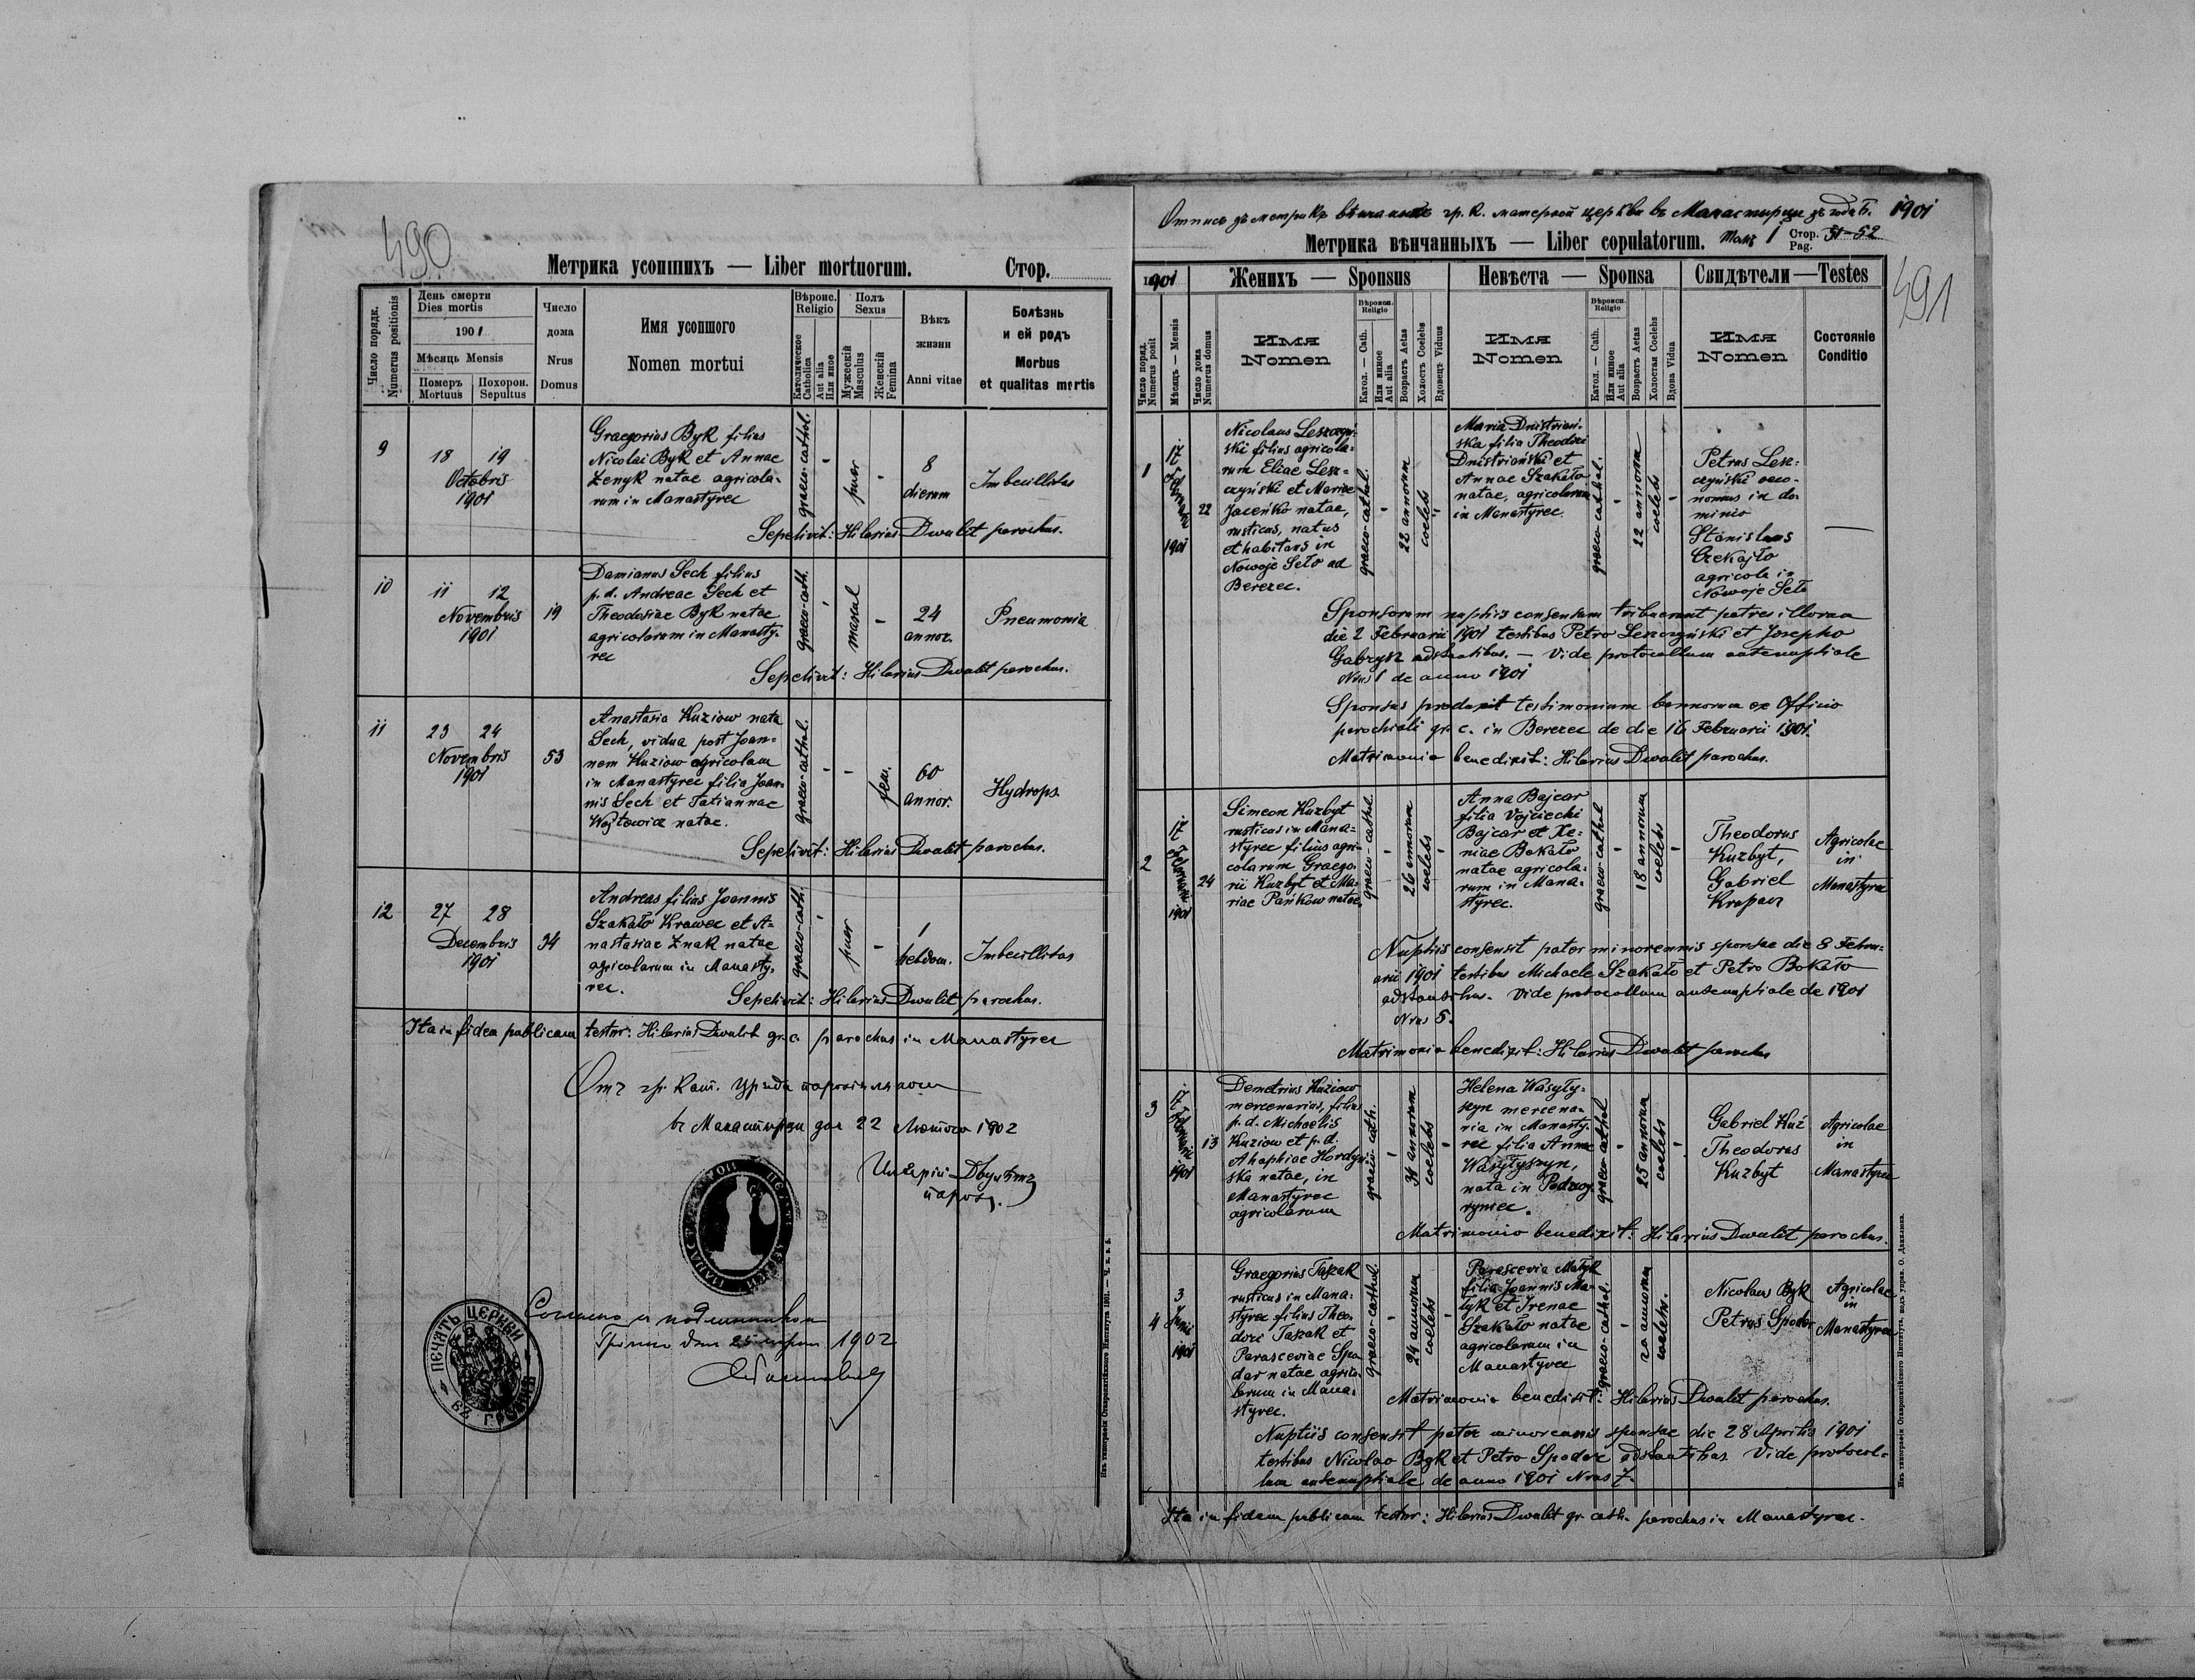 490
Метрика усопшихъ — Liber mortuorum.
Стор.
Число порядк.
Numerus positionis
День смерти
Dies mortis
1901
Мѣсяць Mensis
Померъ
Mortuus
Похорон.
Sepultus
Число
дома
Nrus
Domus
Имя усопшого
Nomen mortui
Вѣроис.
Religio
Католическое
Catholica
Aut alia
Или иное
Полъ
Sexus
Мужескій
Masculus
Женскій
Femina
Вѣкъ
жизни
Anni vitae
Болѣзнь
и ей родъ
Morbus
et qualitas mortis
9
18 19
Octobris
1901
Graegorius Byk filius
Nicolai Byk et Annae
Żenyk natae agricola-
rum in Manastyrec
graeco-cathol.
-
puer
-
8
dierum
Imbecillitas
Sepelivit: Hilarius Dwulit parochus.
10
11 12
Novembris
1901
19
Damianus Sech filius
p. d. Andreae Sech et
Theodosiae Byk natae
agricolarum in Manasty-
rec
graeco-cath.
-
mascul
-
24
annor.
Pneumonia
Sepelivit: Hilarius Dwulit parochus.
11
23 24
Novembris
1901
53
Anastasia Kuziow nata
Sech, vidua post Joan=
nem Kuziow agricolam
in Manastyrec filia Joan-
nis Sech et Tatiannae
Wojtowicz natae.
graeco-cathol.
-
-
fem.
60
annor.
Hydrops.
Sepelivit: Hilarius Dwulit parochus.
12
27 28
Decembris
1901
34
Andreas filius Joannis
Szakało Krawec et A=
nastasiae Znak natae
agricolarum in Manasty-
rec.
graeco-cath.
-
puer
-
1
hebdom.
Imbecillitas
Sepelivit: Hilarius Dwulit parochus.
Ita in fidem publicam testor: Hilarius Dwulit gr. c. parochus in Manastyrec
Отъ гр. кат. уряда парохіяльного
въ Манастирци дня 22 Лютого 1902
Иляріи Двулитъ
парох.
ПЕЧАТЬ ЦЕРКВИ
ВЪ
1902
Отпись зъ метрикъ вѣнчаныхъ гр. к. матерной церкви въ Манастирци зъ года 1901
Метрика вѣнчанныхъ — Liber copulatorum.
Томъ I Стор.
Pag. 51-52
491
1901
Число поряд.
Numerus posit
Мѣсяць — Mensis
Число дома
Numerus domus
Женихъ — Sponsus
Имя
Nomen
Вѣроисп.
Religio
Катол. — Cath.
Или иное
Aut alia
Возрастъ Aetas
Холостъ Coelebs
Вдовецъ Viduus
Невѣста — Sponsa
Имя
Nomen
Вѣроисп.
Religio
Катол. — Cath.
Или иное
Aut alia
Возрастъ Aetas
Холостая Coelebs
Вдова Vidua
Свидѣтели — Testes
Имя
Nomen
Состояніе
Conditio
1
17
Februarii
1901
22
Nicolaus Leszczyń-
ski filius agricola-
rum Eliae Lesz=
czyński et Mariae
Jaceńko natae,
rusticus, natus
et habitans in
Nowoje Seło ad
Berezec.
graeco-cathol.
-
22 annorum
coelebs
Maria Dnistriań-
ska filia Theodori
Dnistriański et
Annae Szakało
natae, agricolarum
in Manastyrec
graeco-cathol.
-
22 annorum
coelebs
-
Petrus Lesz=
czyński oeco-
nomus in do-
minio
Stanislaus
Czekajło
agricola in
Nowoje Seło
Sponsorum nuptiis consensum tribuerunt patres illorum
die 2 Februarii 1901 testibus Petro Leszczyński et Josepho
Gabrysz adstantibus. — Vide protocollum antenuptiale
Nrus 1 de anno 1901
Sponsus produxit testimonium bannorum ex Officio
parochiali gr. c. in Berezec de die 16 Februarii 1901.
Matrimonio benedixit: Hilarius Dwulit parochus.
2
17
Februarii
1901
24
Simeon Kuzbyt
rusticus in Mana=
styrec filius agri-
colarum Graego-
rii Kuzbyt et Ma-
riae Pańkow natae.
graeco-cathol.
-
26 annorum
coelebs
-
Anna Bajcar
filia Vojciechi
Bajcar et Xe-
niae Bokało
natae agricola-
rum in Mana-
styrec.
graeco-cathol
-
18 annorum
coelebs
-
Theodorus
Kuzbyt,
Gabriel
Krapacz
Agricolae
in
Manastyrec
Nuptiis consensit pater minorennis sponsae die 8 Febru-
arii 1901 testibus Michaele Szakało et Petro Bokało
adstantibus. Vide protocollum antenuptiale de 1901
Nrus 5.
Matrimonio benedixit: Hilarius Dwulit parochus
3
17
Februarii
1901
13
Demetrius Kuziow
mercenarius, filius
p. d. Michaelis
Kuziow et p. d.
Ahaphiae Hordyń-
ska natae, in
Manastyrec
agricolarum
graeco-cath.
-
34 annorum
coelebs
-
Helena Wasyły-
szyn mercena-
ria in Manasty-
rec filia Annae
Wasyłyszyn,
nata in Podzwy-
ryniec.
graeco-cathol
-
25 annorum
coelebs
-
Gabriel Kuź
Theodorus
Kuzbyt
Agricolae
in
Manastyrec
Matrimonio benedixit: Hilarius Dwulit parochus.
4
3
Junii
1901
Graegorius Taszak
rusticus in Mana=
styrec filius Theo-
dori Taszak et
Parasceviae Spo
dar natae agrico-
larum in Mana-
styrec.
graeco-cathol.
-
24 annorum
coelebs
-
Parascevia Matyk
filia Joannis Ma-
tyk et Irenae
Szakało natae
agricolarum in
Manastyrec
graeco-cathol.
-
20 annorum
coelebs.
Nicolaus Byk
Petrus Spodar
Agricolae
in
Manastyrec
Matrimonio benedixit: Hilarius Dwulit parochus.
Nuptiis consensit pater minorennis sponsae die 28 Aprilis 1901
testibus Nicolao Byk et Petro Spodar adstantibus Vide protocol-
lum antenuptiale de anno 1901 Nrus 7.
Ita in fidem publicam testor: Hilarius Dwulit gr. cath. parochus in Manastyrec.